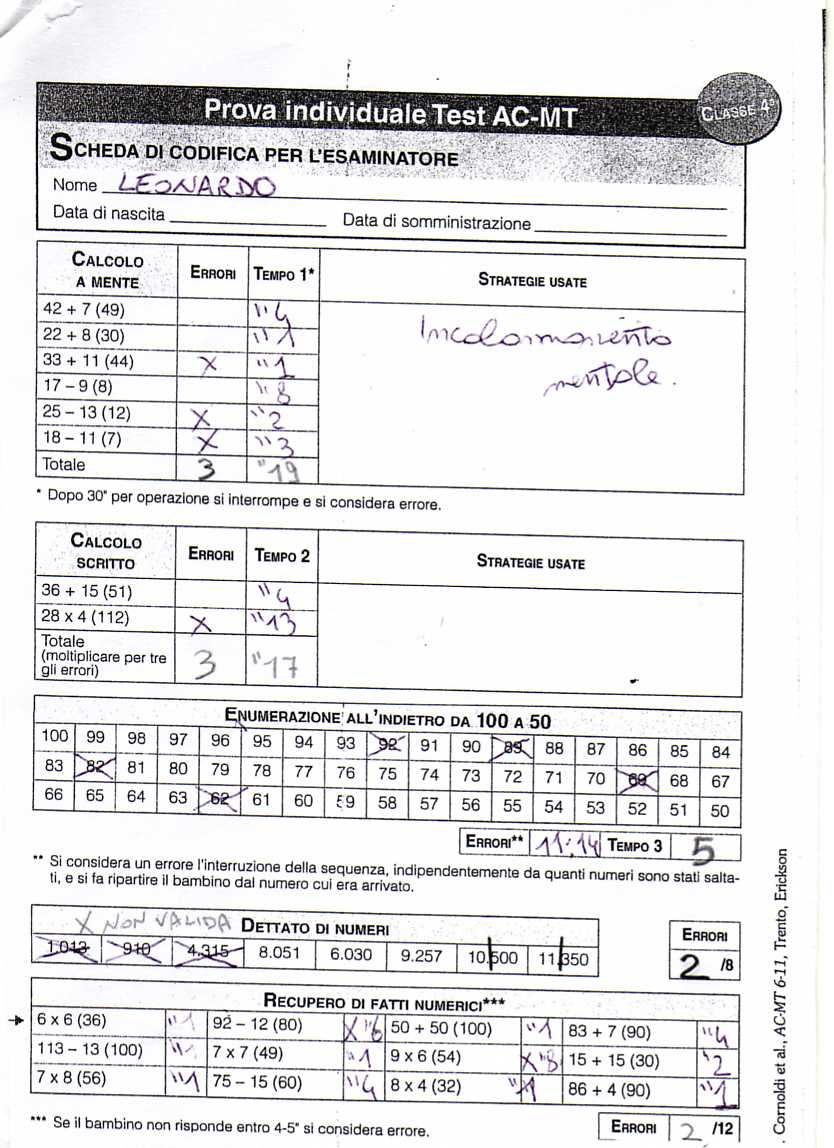 Prova individuale Test AC-MT
CLASSE 4ª
SCHEDA DI CODIFICA PER L'ESAMINATORE
Nome LEONARDO
Data di nascita Data di somministrazione
CALCOLO A MENTE ERRORI TEMPO 1* STRATEGIE USATE
42 + 7 (49) "4
22 + 8 (30) "1
33 + 11 (44) X "1
17 – 9 (8) "8
25 – 13 (12) X "2
18 – 11 (7) X "3
Totale 3 "19
Incolonnamento
mentale.
* Dopo 30" per operazione si interrompe e si considera errore.
CALCOLO SCRITTO ERRORI TEMPO 2 STRATEGIE USATE
36 + 15 (51) "4
28 x 4 (112) X "13
Totale
(moltiplicare per tre
gli errori) 3 "17
ENUMERAZIONE ALL'INDIETRO DA 100 A 50
100 99 98 97 96 95 94 93 92 91 90 89 88 87 86 85 84
83 82 81 80 79 78 77 76 75 74 73 72 71 70 69 68 67
66 65 64 63 62 61 60 59 58 57 56 55 54 53 52 51 50
ERRORI** 11:14 TEMPO 3 5
** Si considera un errore l'interruzione della sequenza, indipendentemente da quanti numeri sono stati salta-
ti, e si fa ripartire il bambino dal numero cui era arrivato.
X NON VALIDA DETTATO DI NUMERI
1.013 910 4.315 8.051 6.030 9.257 10.500 11.350
ERRORI
2 /8
RECUPERO DI FATTI NUMERICI***
6 x 6 (36) "1 92 – 12 (80) X "6 50 + 50 (100) "1 83 + 7 (90) "4
113 – 13 (100) 7 x 7 (49) "1 9 x 6 (54) X "8 15 + 15 (30) "2
7 x 8 (56) "1 75 – 15 (60) "4 8 x 4 (32) "1 86 + 4 (90) "1
*** Se il bambino non risponde entro 4-5" si considera errore.
ERRORI 2 /12
Cornoldi et al., AC-MT 6-11, Trento, Erickson